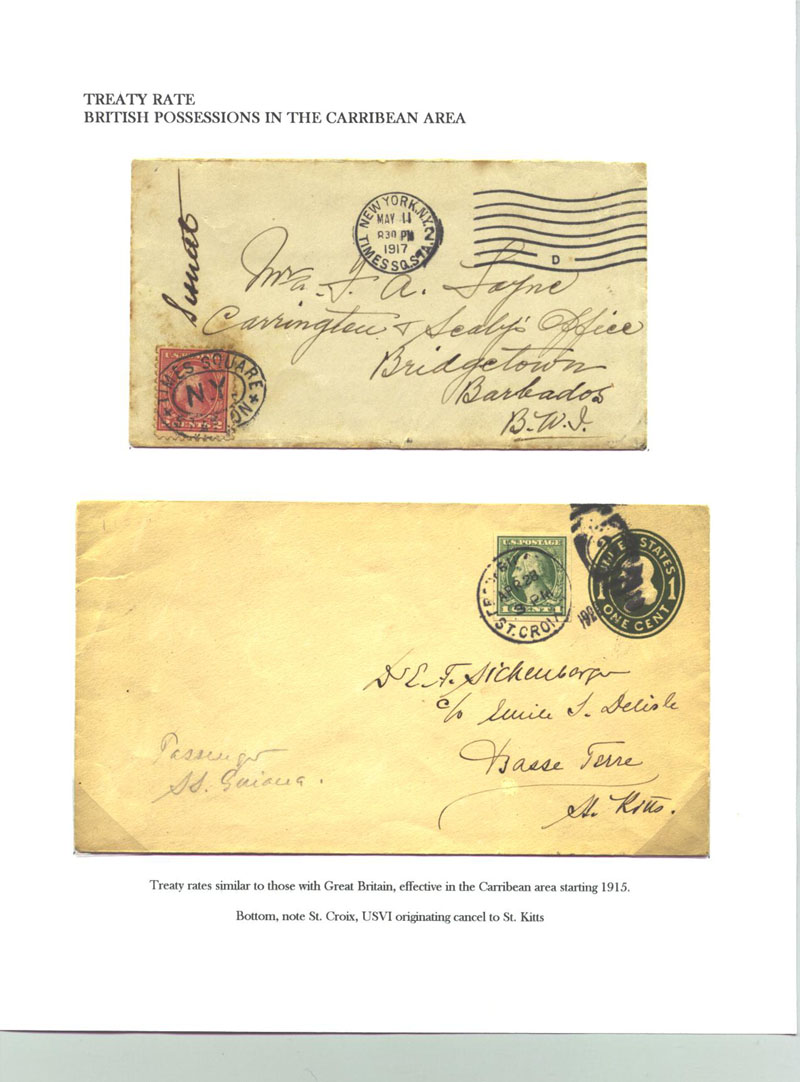 TREATY RATE
BRITISH POSSESSIONS IN THE CARRIBEAN AREA
NEW YORK, N.Y.
MAY 11
830 PM
1917
TIMES SQ. STA.
D
Mrs. A.
Carrington & Sealy's Office
Bridgetown
Barbados
B.W.I.
U.S. POSTAGE
TIMES SQUARE
NY
CENTS 2
U.S. POSTAGE
ST. CROIX
UNITED STATES
1 1
ONE CENT
Dr E. F. Sichenberger
c/o Emile S. Delisle
Basse Terre
St. Kitts.
Passenger
SS. Guiana.
Treaty rates similar to those with Great Britain, effective in the Carribean area starting 1915.
Bottom, note St. Croix, USVI originating cancel to St. Kitts